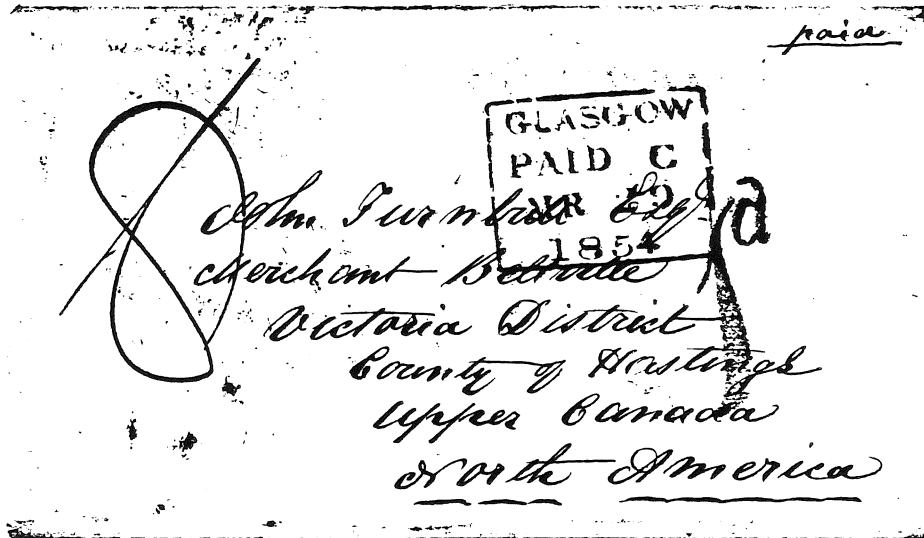 paid
8
GLASGOW
PAID C
1854
d
John Turnbull Esqr
Merchant Belleville
Victoria District
County of Hastings
Upper Canada
North America